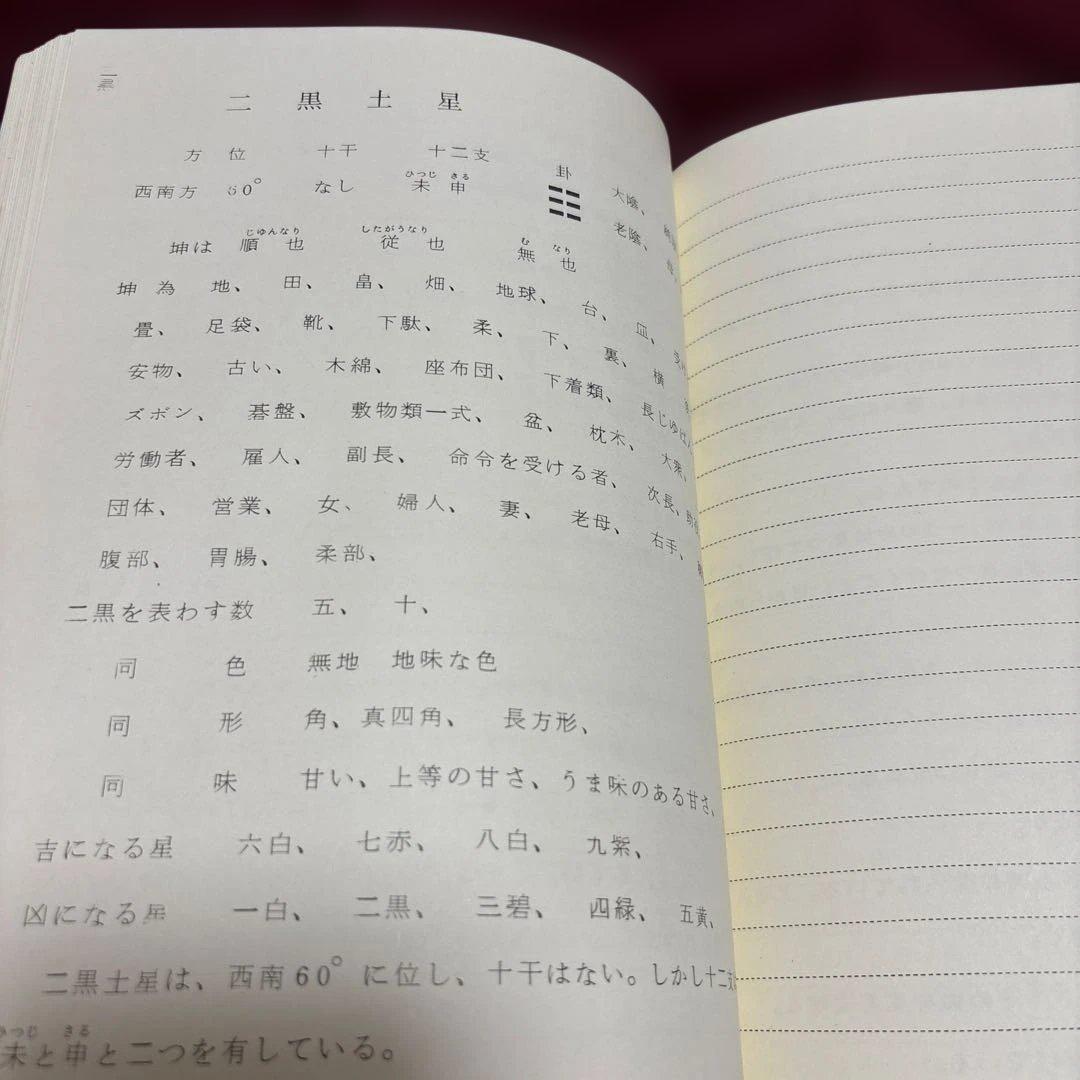 二黒
二黒土星
方位 十干 十二支 卦 大陰、
西南方 60° なし 未 申 老陰、
ひつじ さる
坤は 順也 従也 無也
じゆんなり したがうなり む なり
坤為 地、田、畠、畑、地球、台、皿、
畳、足袋、靴、下駄、柔、下、裏、横
安物、古い、木綿、座布団、下着類、長じゆばん
ズボン、碁盤、敷物類一式、盆、枕木、大衆、
労働者、雇人、副長、命令を受ける者、次長、
団体、営業、女、婦人、妻、老母、右手、
腹部、胃腸、柔部、
二黒を表わす数 五、十、
同 色 無地 地味な色
同 形 角、真四角、長方形、
同 味 甘い、上等の甘さ、うま味のある甘さ、
吉になる星 六白、七赤、八白、九紫、
凶になる星 一白、二黒、三碧、四緑、五黄、
二黒土星は、西南60°に位し、十干はない。しかし十二支
ひつじ さる
未と申と二つを有している。